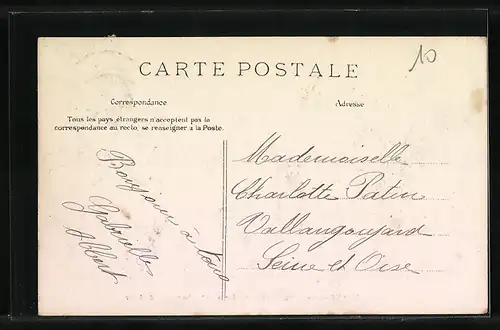 10
CARTE POSTALE
Correspondance
Adresse
Tous les pays étrangers n'acceptent pas la
correspondance au recto, se renseigner à la Poste.
Bonjour à tous
Gabrielle
Albert
Mademoiselle
Charlotte Patin
Vallangoujard
Seine et Oise